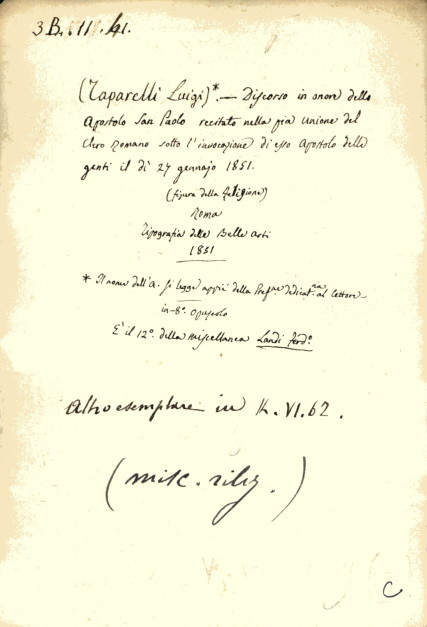 3 B. 11. 41.
(Taparelli Luigi)*. — Discorso in onore dello
Apostolo San Paolo recitato nella pia unione del
Clero Romano sotto l'invocazione di esso Apostolo delle
genti il dì 27 gennajo 1851.
(figura della Religione)
Roma
Tipografia delle Belle arti
1851
* Il nome dell'A. si legge appiè della Prefne dedicatria al lettore
in-8°. opuscolo
È il 12°. della Miscellanea Landi ferdo.
Altro esemplare in K. VI. 62.
(misc. rileg.)
C